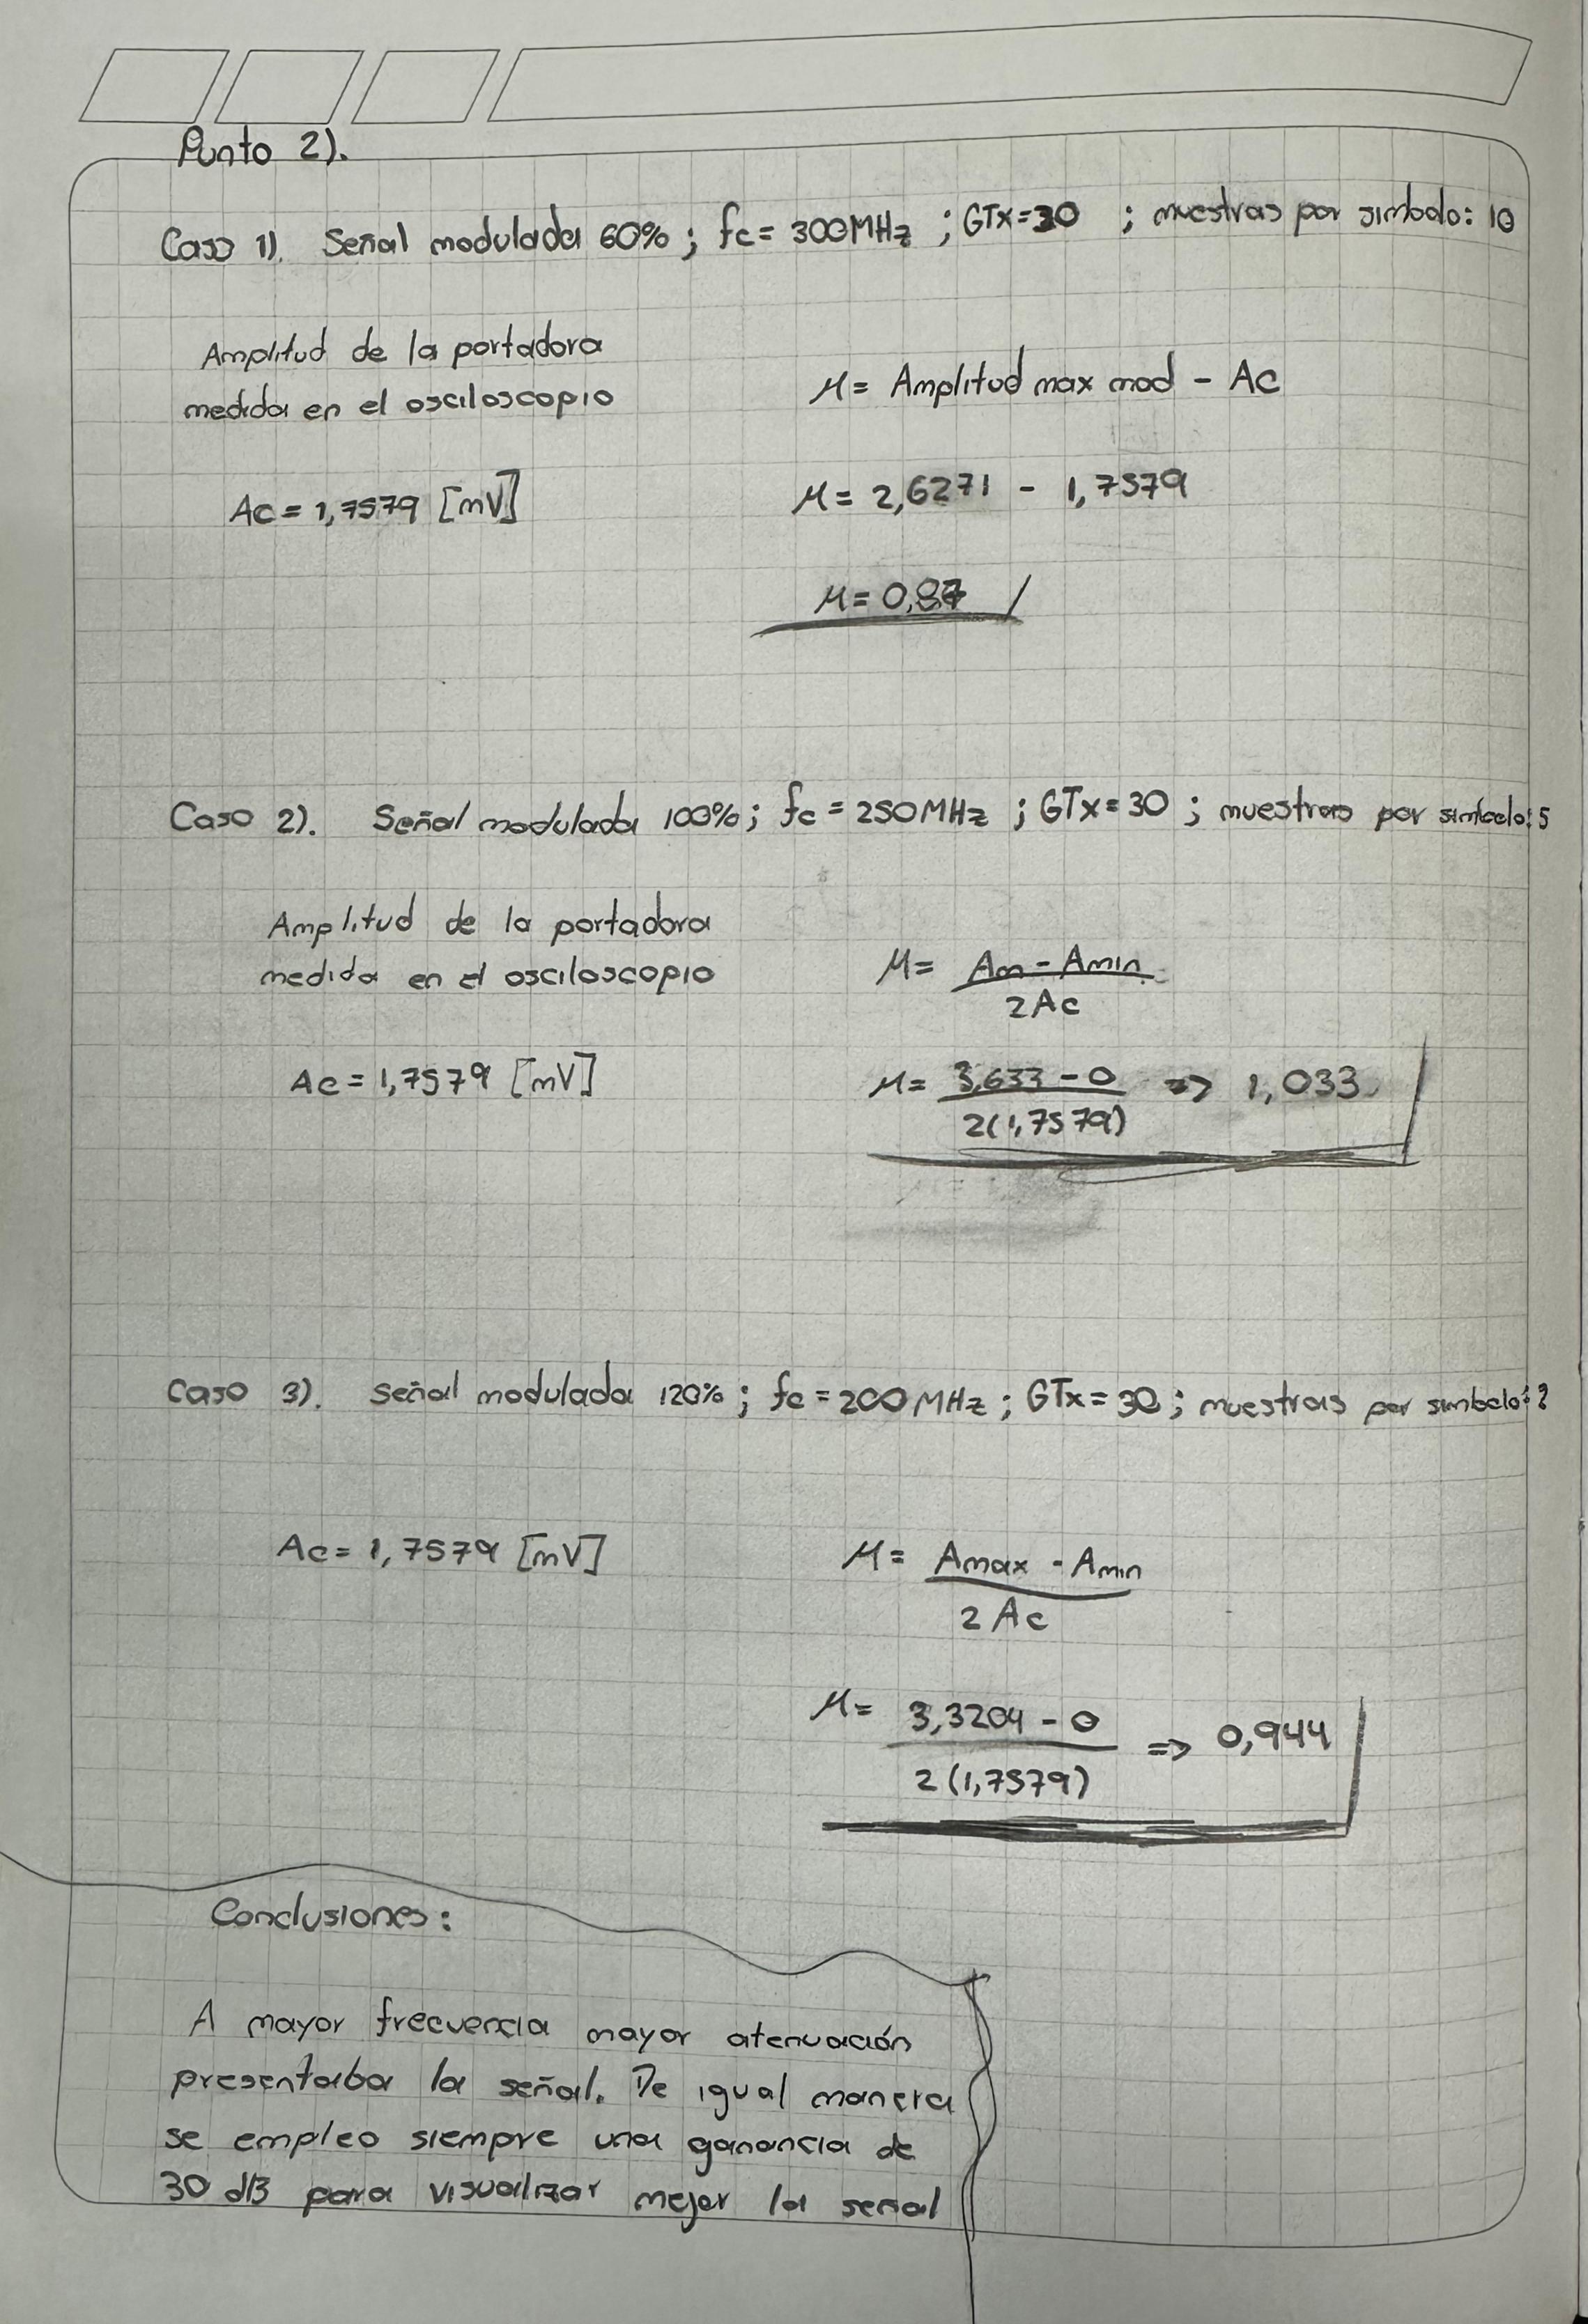 Punto 2).
Caso 1). Señal modulada 60% ; fc = 300MHz ; GTx=30 ; muestras por simbolo: 10
Amplitud de la portadora
medida en el osciloscopio
μ = Amplitud max mod - Ac
Ac = 1,7579 [mV]
μ = 2,6271 - 1,7579
μ = 0,87
Caso 2). Señal modulada 100% ; fc = 250MHz ; GTx = 30 ; muestras por simbolo: 5
Amplitud de la portadora
medida en el osciloscopio
μ = Am - Amin
2Ac
Ac = 1,7579 [mV]
μ = 3,633 - 0 => 1,033
2(1,7579)
Caso 3). Señal modulada 120% ; fc = 200MHz ; GTx = 30 ; muestras por simbolo:
Ac = 1,7579 [mV]
μ = Amax - Amin
2Ac
μ = 3,3204 - 0 => 0,944
2(1,7579)
Conclusiones:
A mayor frecuencia mayor atenuación
presentaba la señal. De igual manera
se empleo siempre una ganancia de
30 dB para visualizar mejor la señal